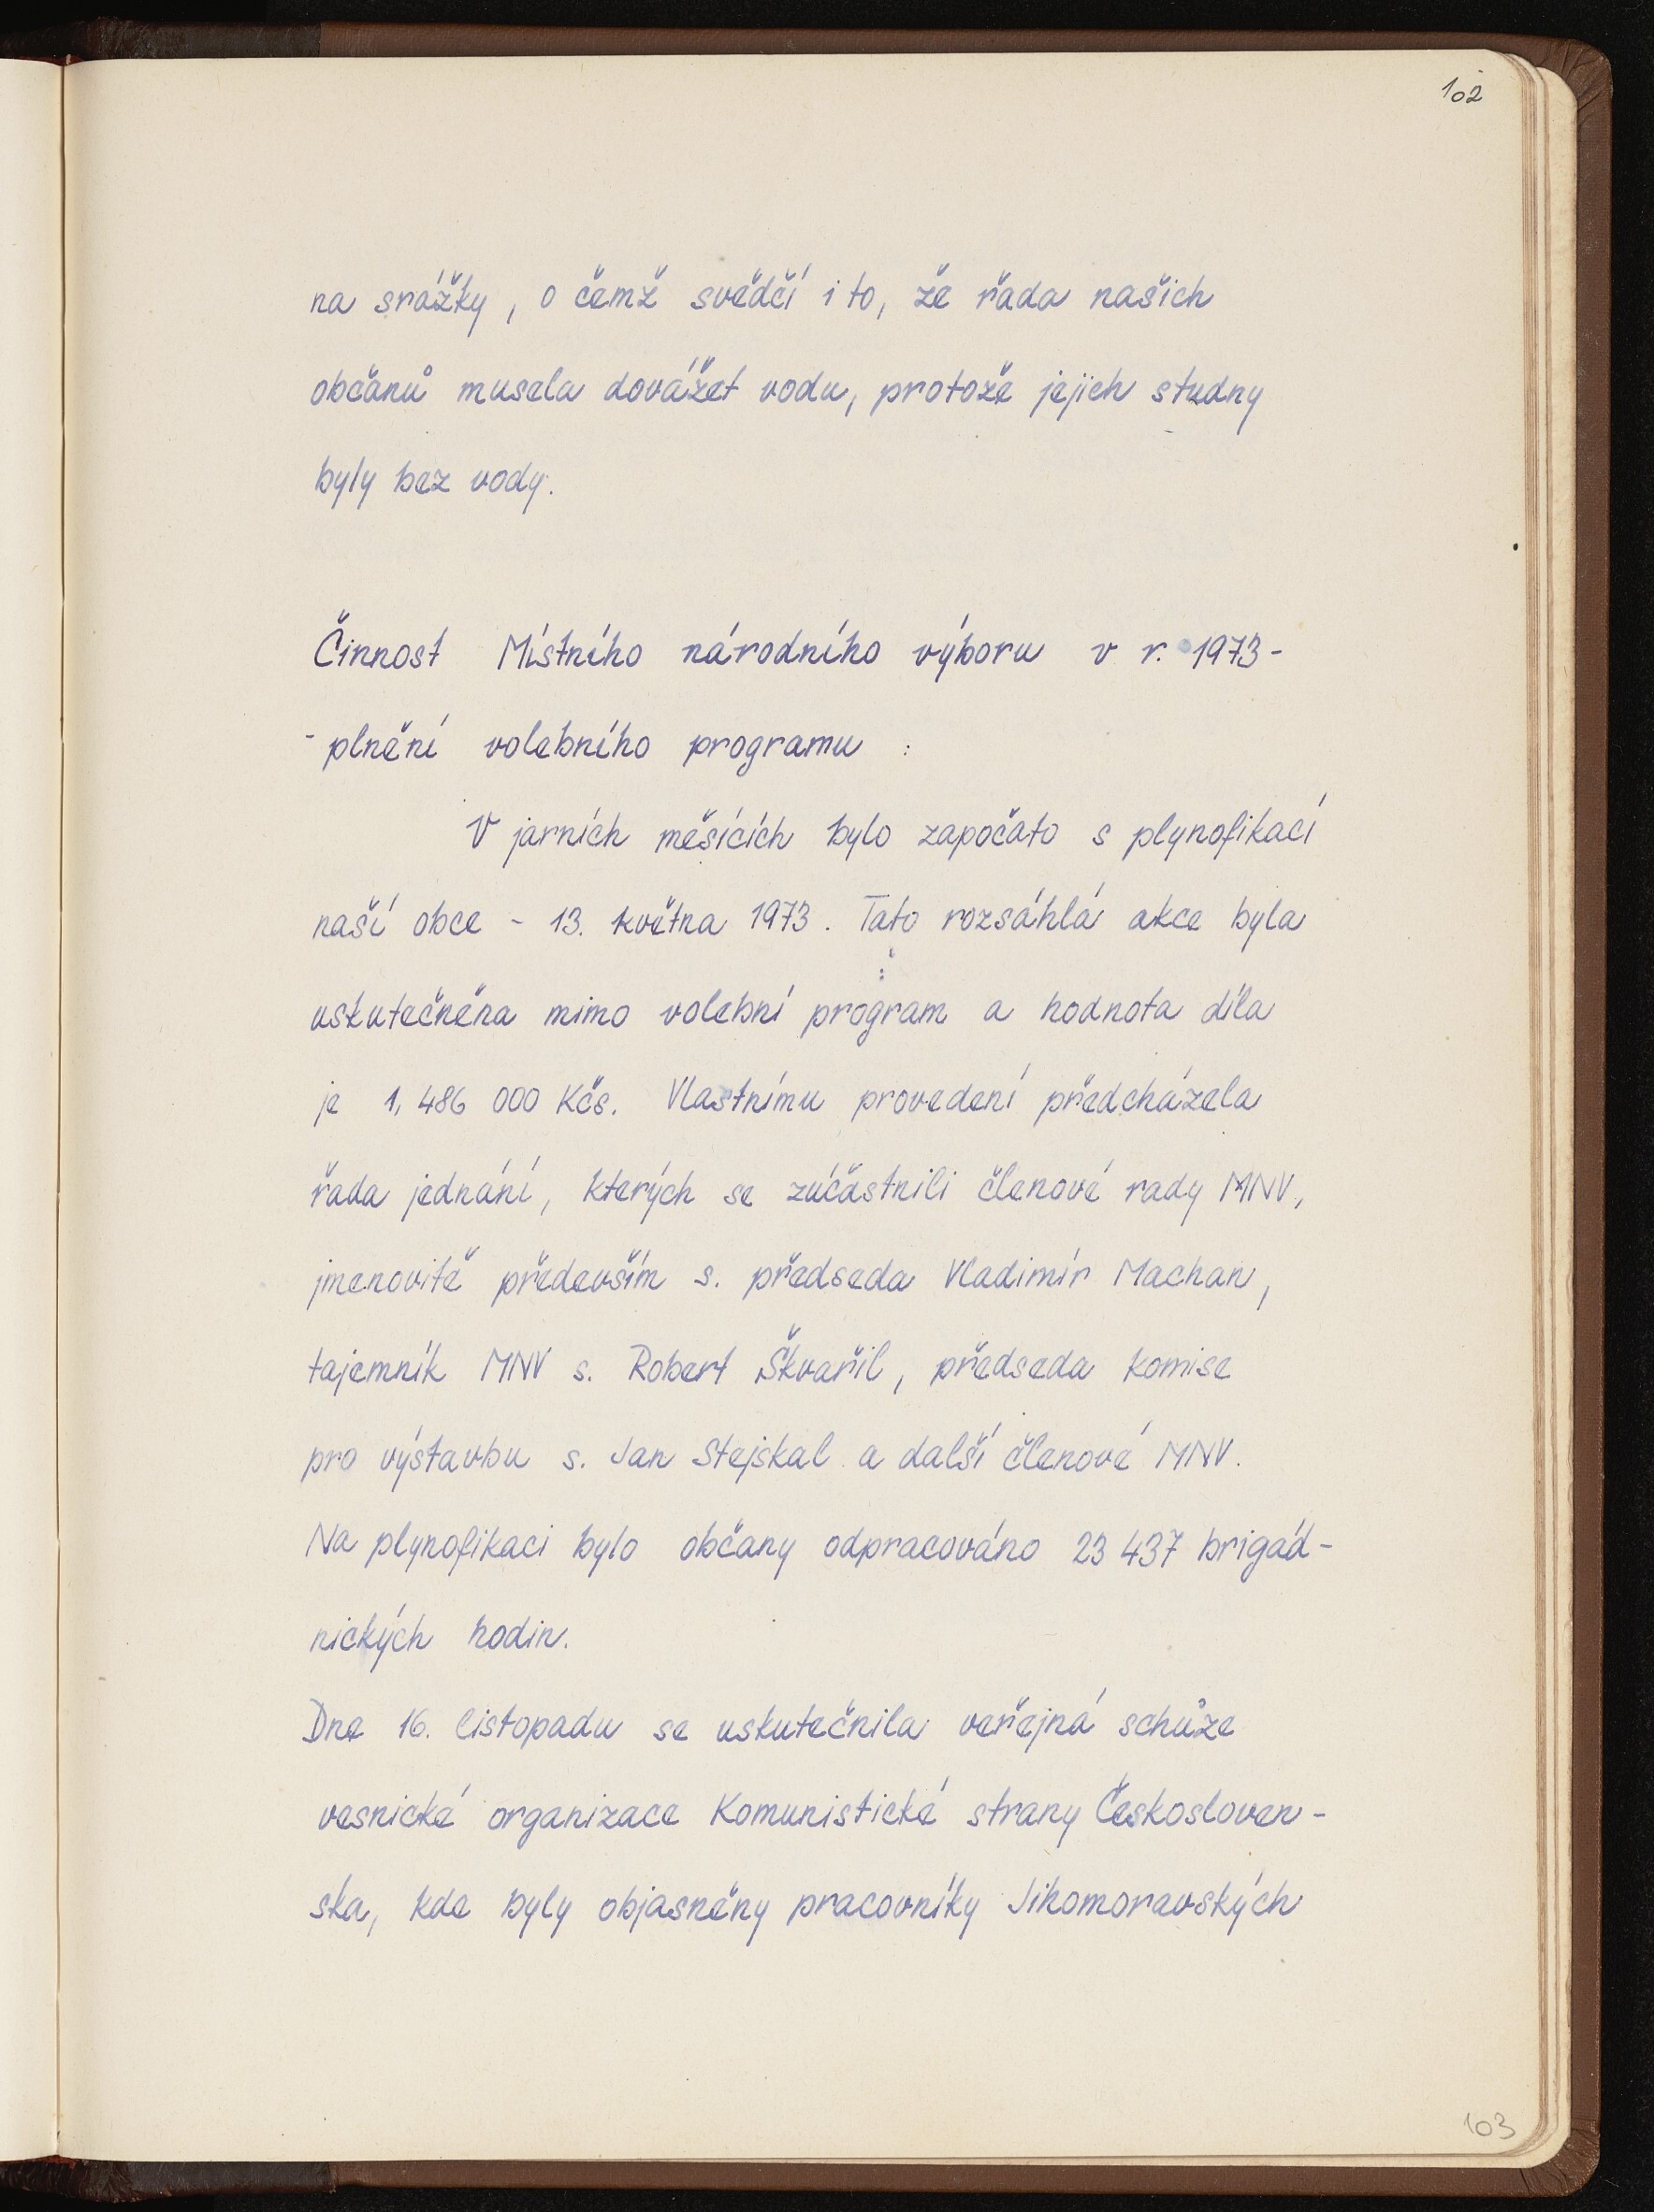 102
na srážky, o čemž svědčí i to, že řada našich
občanů musela dovážet vodu, protože jejich studny
byly bez vody.
Činnost Místního národního výboru v r. 1973-
-plnění volebního programu :
V jarních měsících bylo započato s plynofikací
naší obce - 13. května 1973. Tato rozsáhlá akce byla
uskutečněna mimo volební program a hodnota díla
je 1,486 000 Kčs. Vlastnímu provedení předcházela
řada jednání, kterých se zúčastnili členové rady MNV,
jmenovitě především s. předseda Vladimír Machan,
tajemník MNV s. Robert Škvařil, předseda komise
pro výstavbu s. Jan Stejskal a další členové MNV.
Na plynofikaci bylo občany odpracováno 23 437 brigád-
nických hodin.
Dne 16. listopadu se uskutečnila veřejná schůze
vesnické organizace Komunistické strany Českosloven-
ska, kde byly objasněny pracovníky Jihomoravských
103